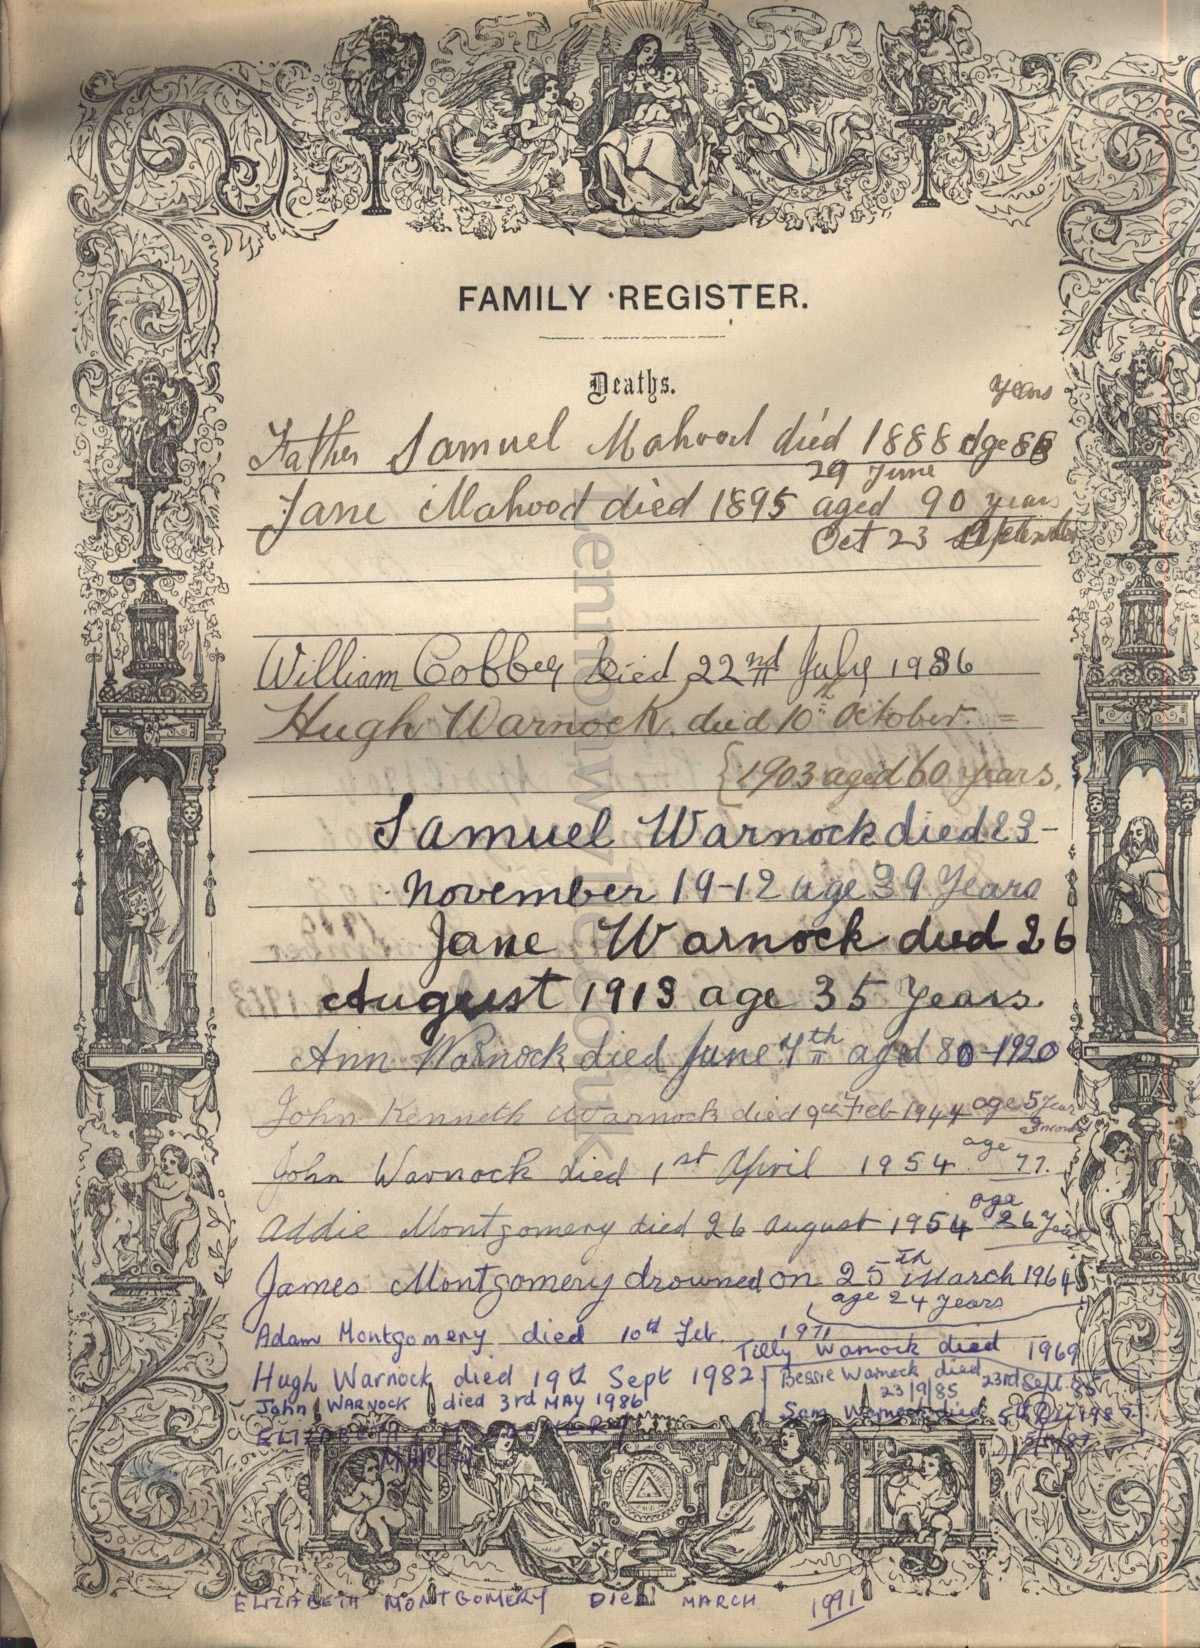 FAMILY REGISTER.
Deaths.
years
Father Samuel Mahood died 1888 age
29 June
Jane Mahood died 1895 aged 90 years
Oct 23 September
William Cobbey Died 22nd July 1936
Hugh Warnock died 10th October =
{1903 aged 60 years.
Samuel Warnock died 23-
November 19-12 age 39 Years
Jane Warnock died 26
August 1913 age 35 Years
Ann Warnock died June 7th aged 80 - 1920
John Kenneth Warnock died 9th Feb 1944 age 5 Year
John Warnock died 1st April 1954 age 77.
Addie Montgomery died 26 August 1954 age 26 Years
James Montgomery drowned on 25th March 1964
age 24 years
Adam Montgomery died 10th Feb. 1971
Tilly Warnock died 1969
Hugh Warnock died 19th Sept 1982
Bessie Warnock died 23rd Sept. 85
23/9/85
John WARNOCK died 3rd MAY 1986
Sam Warnock died 5th
ELIZABETH
MARCH
ELIZABETH MONTGOMERY DIED MARCH 1991
Lennonwylie.co.uk